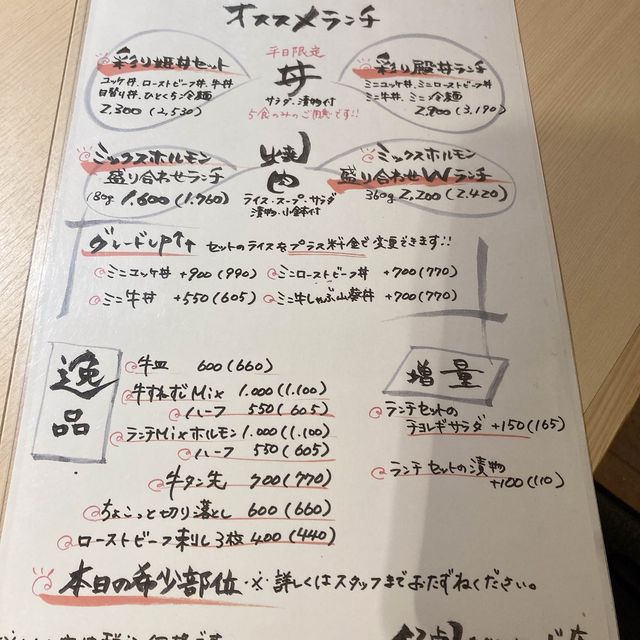 オススメランチ
彩り姫丼セット
ユッケ丼、ローストビーフ丼、牛丼
日替り丼、ひとくち冷麺
2,300(2,530)
平日限定
丼
サラダ、漬物付
5食のみのご用意です!!
彩り殿丼ランチ
ミニユッケ丼、ミニローストビーフ丼
ミニ牛丼、ミニ冷麺
2,900(3,190)
ミックスホルモン
盛り合わせランチ
180g 1,600(1,760)
ライス・スープ・サラダ
漬物・小鉢付
ミックスホルモン
盛り合わせWランチ
360g 2,200(2,420)
グレードUP↑↑ セットのライスをプラス料金で変更できます!!
ミニユッケ丼 +900(990)
ミニローストビーフ丼 +700(770)
ミニ牛丼 +550(605)
ミニ牛しゃぶ山葵丼 +700(770)
逸品
牛皿 600(660)
牛すねずみMix 1,000(1,100)
ハーフ 550(605)
ランチMixホルモン 1,000(1,100)
ハーフ 550(605)
牛タン先 700(770)
ちょこっと切り落とし 600(660)
ローストビーフ刺し3枚 400(440)
増量
ランチセットの
チョレギサラダ +150(165)
ランチセットの漬物
+100(110)
本日の希少部位・※詳しくはスタッフまでおたずねください。